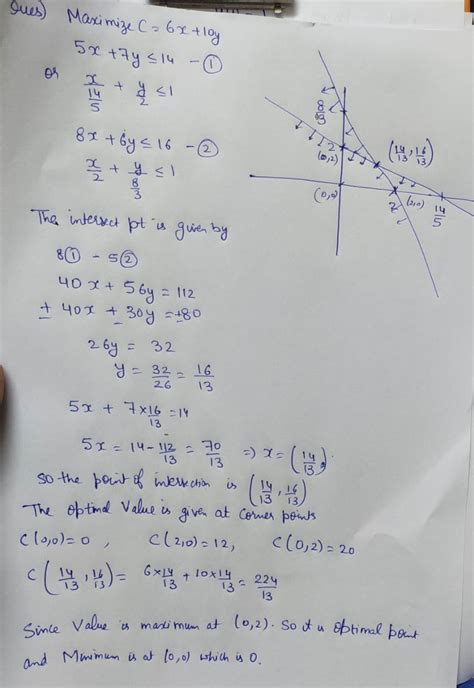 Ques) Maximize C = 6x+10y
5x+7y ≤ 14 — ①
or
x/(14/5) + y/2 ≤ 1
8x+6y ≤ 16 — ②
x/2 + y/(8/3) ≤ 1
The intersect pt is given by
8① - 5②
40x + 56y = 112
± 40x ± 30y = ±80
26y = 32
y = 32/26 = 16/13
5x + 7×16/13 = 14
5x = 14 - 112/13 = 70/13 => x = (14/13).
So the point of intersection is (14/13, 16/13)
The optimal value is given at corner points
C(0,0) = 0, C(2,0) = 12, C(0,2) = 20
C(14/13, 16/13) = 6×14/13 + 10×14/13 = 224/13
Since Value is maximum at (0,2). So it is optimal point
and Minimum is at (0,0) which is 0.
8/3
2
(0,2)
(14/13, 16/13)
(0,0)
2
(2,0)
14/5